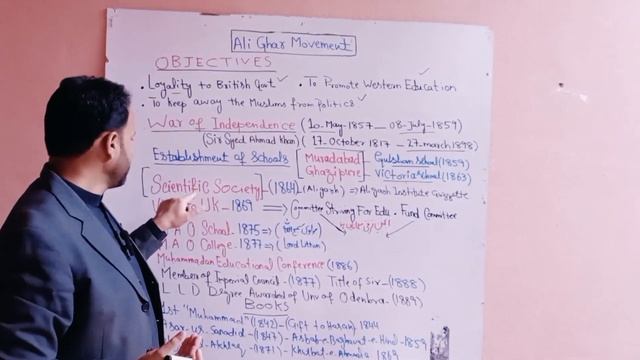 Ali Ghar Movement
OBJECTIVES
• Loyality to British Govt ✓ • To Promote Western Education ✓
• To Keep away the Muslims from Politics ✓
War of Independence (10-May-1857 — 08-July-1859)
(Sir Syed Ahmad Khan) (17. October 1817 – 27-march 1898)
Establishment of Schools [Muradabad – Gulshan School (1859)
Ghazipure – Victoria School (1863)
[Scientific Society] – (1864) (Aligarh) ⇒ Aligarh Institute Gazzette
U.K – 1869 ⇒ Committee Striving For Edu. Fund Committee
A O School. 1875 ⇒
A O College. 1877 ⇒ (Lord Lytton)
Muhammadan Educational Conference (1886)
Member of Imperial Council – (1877) Title of Sir – (1888)
L L D Degree Awarded of Unv of Odenbra. (1889)
BOOKS
1st "Muhammad" (1842) – (Gift to Haram) 1844
Sanadid – (1847) – Asbab-e-Baghawat-e-Hind – 1859
– (1871) – Khutbat-e-Ahmadia 1869